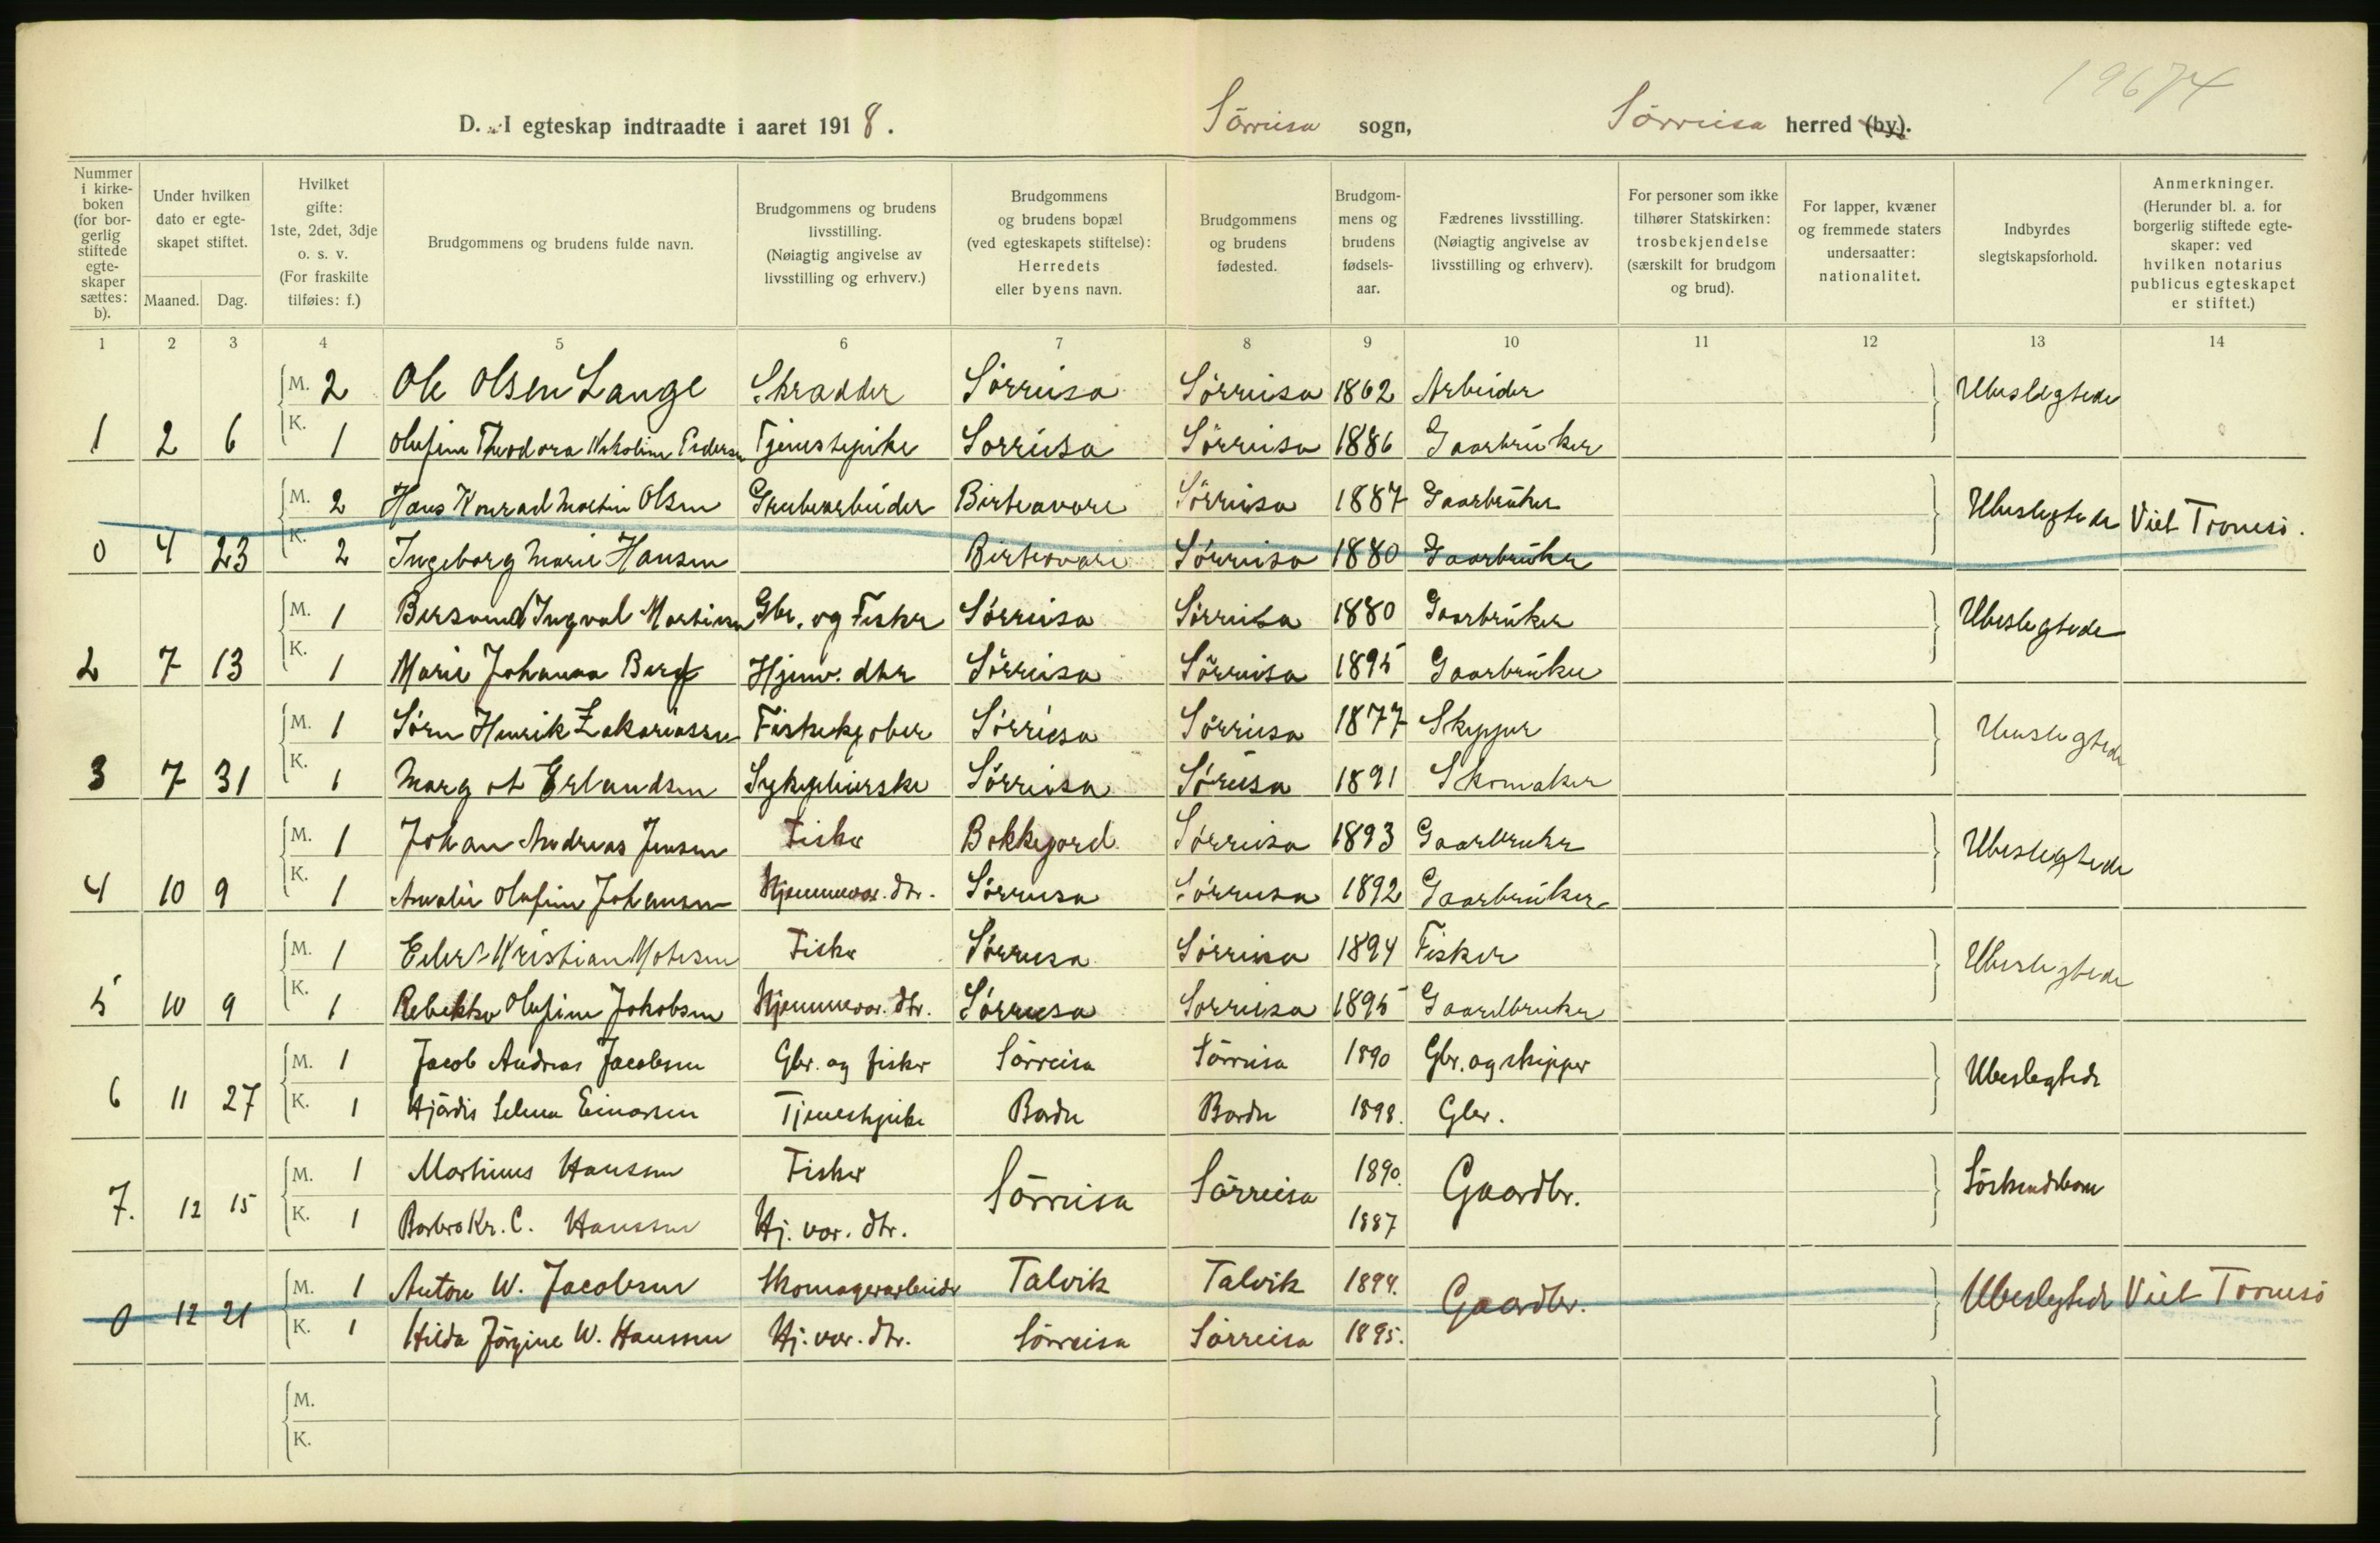 19674
D. I egteskap indtraadte i aaret 1918. Sörreisa sogn, Sörreisa herred (by).
Nummer i kirke-boken (for bor-gerlig stiftede egte-skaper sættes: b).
Under hvilken dato er egte-skapet stiftet.
Maaned. Dag.
Hvilket gifte: 1ste, 2det, 3dje o. s. v. (For fraskilte tilføies: f.)
Brudgommens og brudens fulde navn.
Brudgommens og brudens livsstilling. (Nøiagtig angivelse av livsstilling og erhverv.)
Brudgommens og brudens bopæl (ved egteskapets stiftelse): Herredets eller byens navn.
Brudgommens og brudens fødested.
Brudgom-mens og brudens fødsels-aar.
Fædrenes livsstilling. (Nøiagtig angivelse av livsstilling og erhverv).
For personer som ikke tilhører Statskirken: trosbekjendelse (særskilt for brudgom og brud).
For lapper, kvæner og fremmede staters undersaatter: nationalitet.
Indbyrdes slegtskapsforhold.
Anmerkninger. (Herunder bl. a. for borgerlig stiftede egte-skaper: ved hvilken notarius publicus egteskapet er stiftet.)
1 2 3 4 5 6 7 8 9 10 11 12 13 14
M. 2 Ole Olsen Lange Skrædder Sörreisa Sörreisa 1862 Arbeider Ubeslegtede
1 2 6 K. 1 Olufine Theodora Nikoline Pedersen Tjenestepike Sorreisa Sörreisa 1886 Gaarbruker
M. 2 Hans Konrad Martin Olsen Grubearbeider Birtavare Sörreisa 1887 Gaarbruker Ubeslegtede Viet Tromsö.
0 4 23 K. 2 Ingeborg Marie Hansen Birtavare Sörreisa 1880 Gaarbruker
M. 1 Bersvend Ingval Martinsen Gbr. og Fisker Sörreisa Sörreisa 1880 Gaarbruker Ubeslegtede
2 7 13 K. 1 Marie Johanna Berg Hjemv. dtr Sörreisa Sörreisa 1895 Gaarbruker
M. 1 Sörn Henrik Zakariassen Fiskekjøber Sörreisa Sörreisa 1877 Skipper Ubeslegtede
3 7 31 K. 1 Margot Erlandsen Sykepleierske Sörreisa Söreisa 1891 Skomaker
M. 1 Johan Andreas Jensen Fisker Bekkejord Sörreisa 1893 Gaarbruker Ubeslegtede
4 10 9 K. 1 Amalie Olufine Johansen Hjemmevær. dtr. Sörreisa Sörreisa 1892 Gaarbruker
M. 1 Eiler Kristian Motesen Fisker Sörreisa Sörreisa 1894 Fisker Ubeslegtede
5 10 9 K. 1 Rebekka Olufine Jakobsen Hjemmevær. dtr. Sörreisa Sorreisa 1895 Gaardbruker
M. 1 Jacob Andreas Jacobsen Gbr. og fisker Sörreisa Sörreisa 1890 Gbr. og skipper Ubeslegtede
6 11 27 K. 1 Hjördis Selma Einarsen Tjenestepike Bardu Bardu 1898. Gbr.
M. 1 Martinus Hanssen Fisker Sörreisa Sörreisa 1890. Gaardbr. Söskendebarn
7. 12 15 K. 1 Barbro Kr. C. Hanssen Hj. vær. dtr. 1887
M. 1 Anton W. Jacobsen Skomagerarbeider Talvik Talvik 1894. Gaardbr. Ubeslegtede Viet Tromsö
0 12 21 K. 1 Hilda Jörgine W. Hanssen Hj. vær. dtr. Sörreisa Sörreisa 1895.
M.
K.